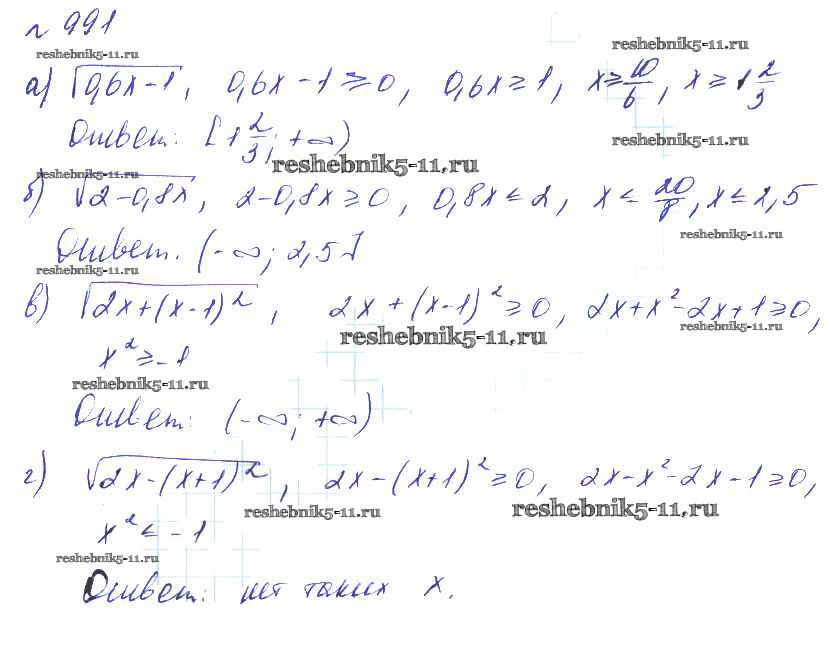 № 991
reshebnik5-11.ru
reshebnik5-11.ru
а) √(0,6x-1), 0,6x-1≥0, 0,6x≥1, x≥10/6, x≥1 2/3
Ответ: [1 2/3; +∞)
reshebnik5-11.ru
reshebnik5-11.ru
reshebnik5-11.ru
б) √(2-0,8x), 2-0,8x≥0, 0,8x≤2, x≤20/8, x≤2,5
reshebnik5-11.ru
Ответ. (-∞; 2,5]
reshebnik5-11.ru
в) √(2x+(x-1)²), 2x+(x-1)²≥0, 2x+x²-2x+1≥0,
reshebnik5-11.ru
reshebnik5-11.ru
x²≥-1
reshebnik5-11.ru
Ответ: (-∞; +∞)
г) √(2x-(x+1)²), 2x-(x+1)²≥0, 2x-x²-2x-1≥0,
reshebnik5-11.ru
reshebnik5-11.ru
x²≤-1
reshebnik5-11.ru
Ответ: нет таких x.